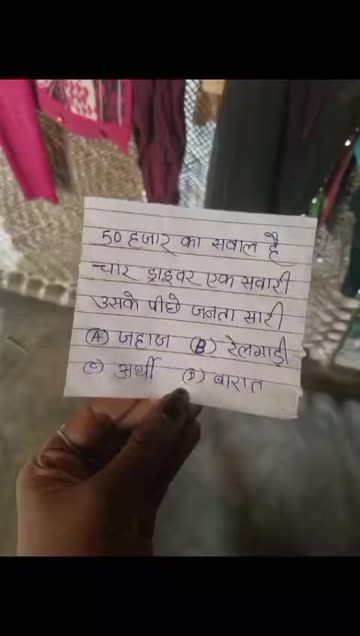 50 हजार का सवाल है
चार ड्राइवर एक सवारी
उसके पीछे जनता सारी
(A) जहाज (B) रेलगाड़ी
(C) अर्थी (D) बारात